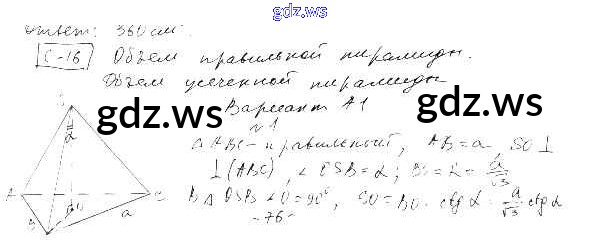 gdz.ws
Ответ: 360 см³.
С-16 Объем правильной пирамиды.
Объем усеченной пирамиды
Вариант А1
gdz.ws gdz.ws
№1
S
α
A O C
B a
Δ ABC - правильный, AB = a, SO ⊥
⊥ (ABC), ∠ OSB = α; BO = R = a/√3
В Δ OSB ∠O = 90°, SO = BO · ctg α = a/√3 ctg α
-76-